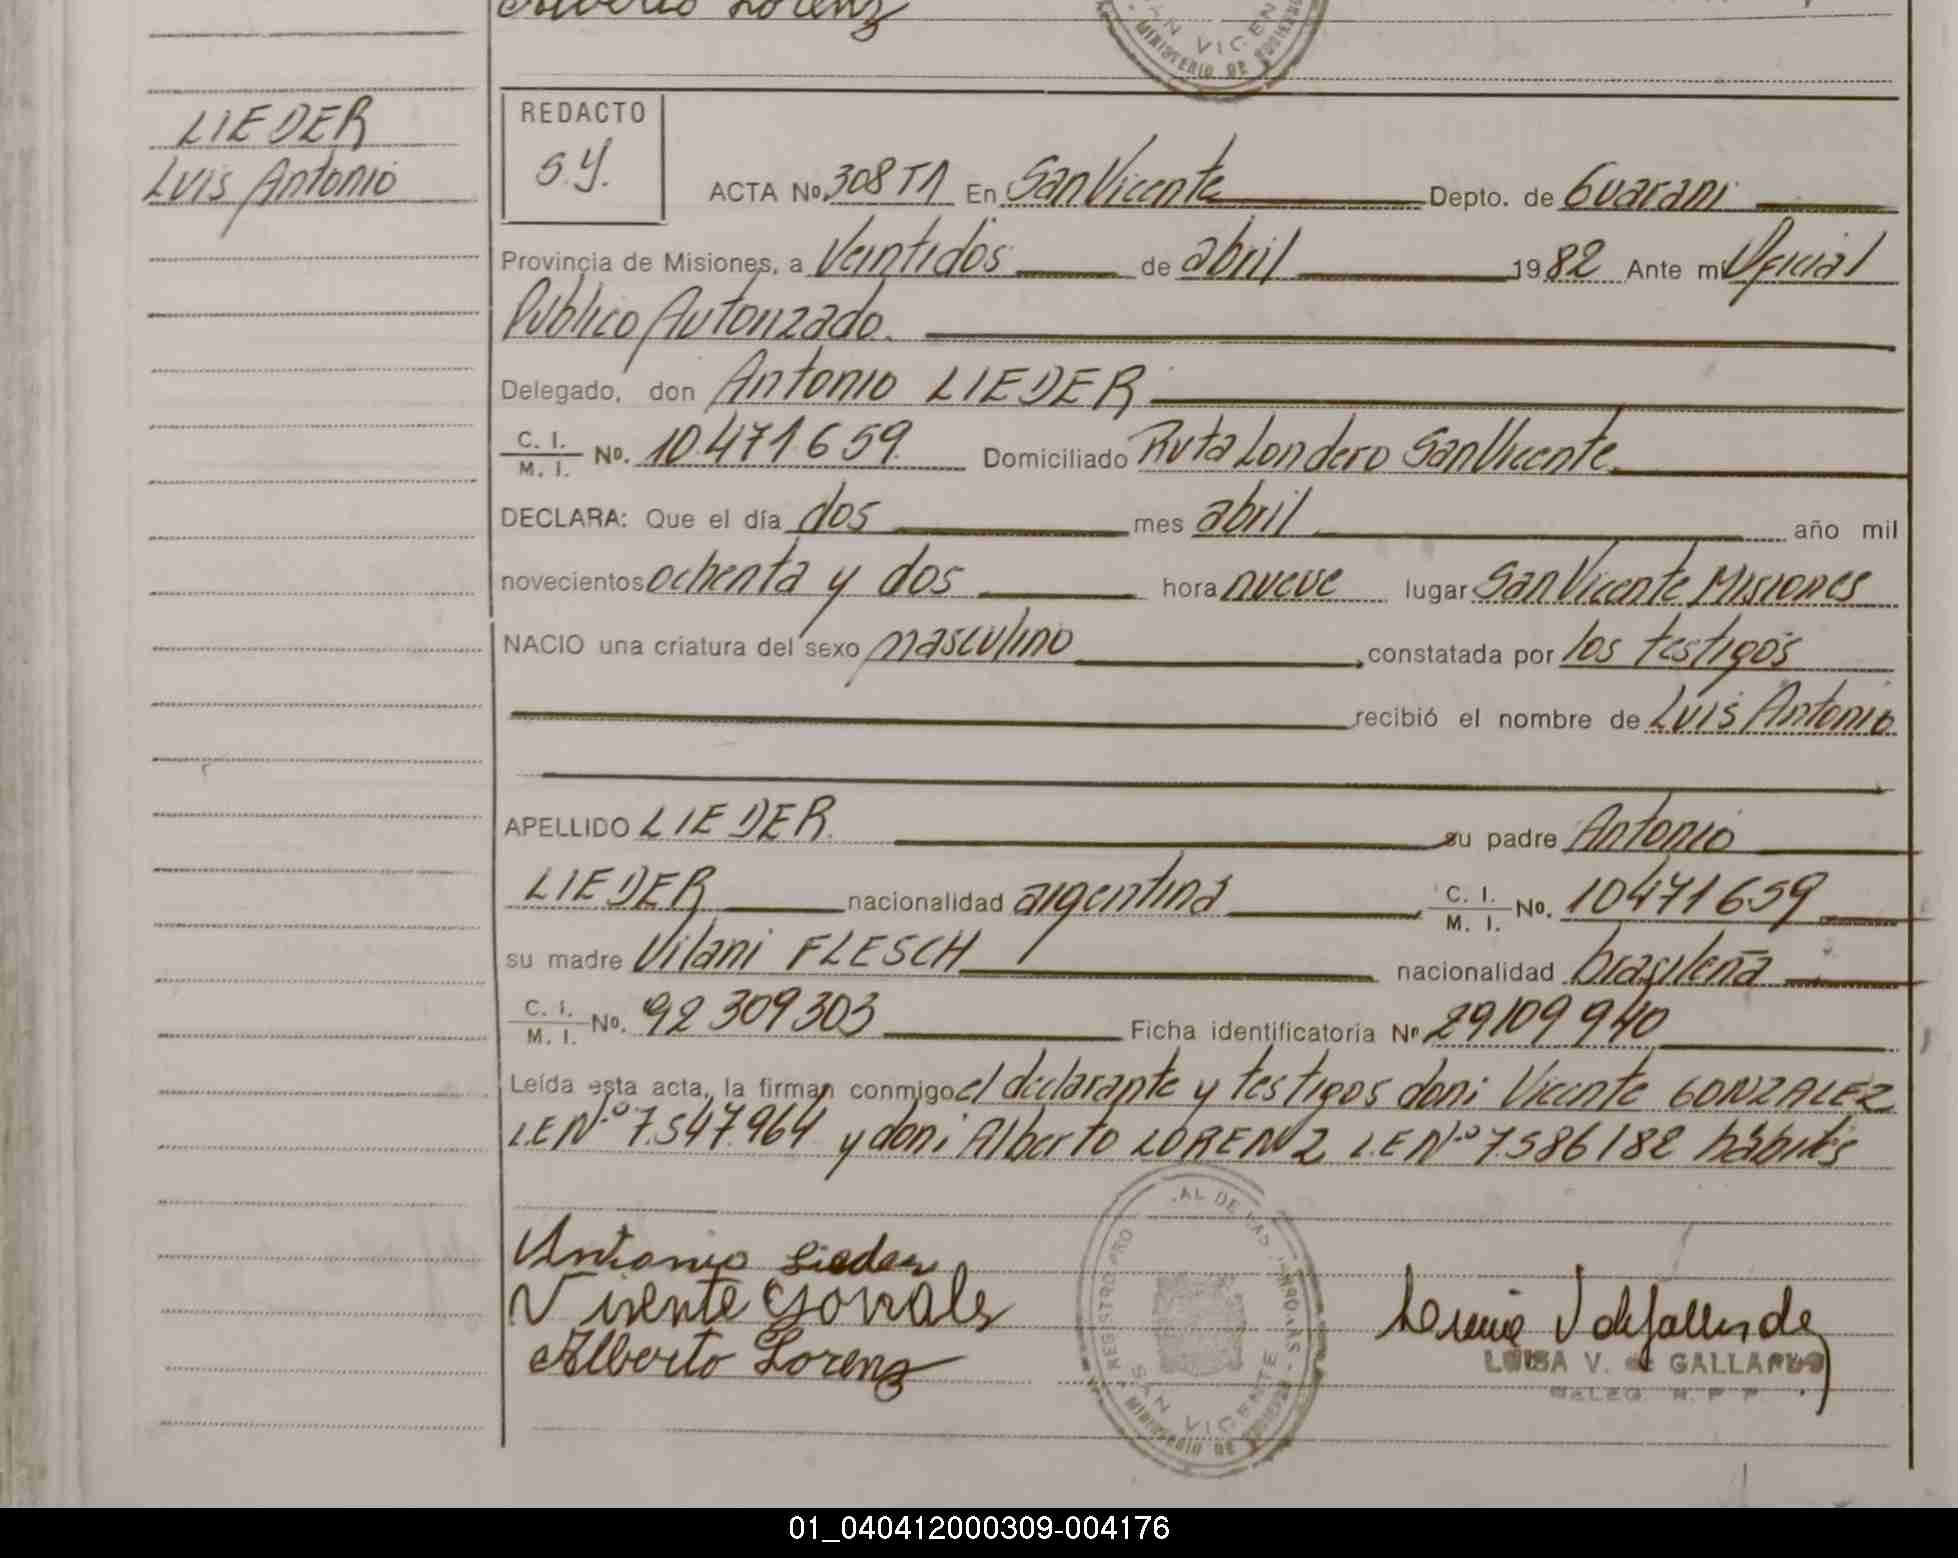 Alberto Lorenz
SAN VICEN
MINISTERIO DE
LIEDER
Luis Antonio
REDACTO
S.Y.
ACTA Nº 308 T1 En San Vicente Depto. de Guarani
Provincia de Misiones, a Veintidos de abril 1982 Ante mi Oficial
Publico Autorizado.
Delegado, don Antonio LIEDER
C. I.
M. I. Nº. 10.471.659. Domiciliado Ruta Londero San Vicente
DECLARA: Que el día dos mes abril año mil
novecientos ochenta y dos hora nueve lugar San Vicente Misiones
NACIO una criatura del sexo masculino constatada por los testigos
recibió el nombre de Luis Antonio
APELLIDO LIEDER. su padre Antonio
LIEDER nacionalidad argentina C. I.
M. I. Nº. 10471659
su madre Vilani FLESCH nacionalidad brasileña
C. I.
M. I. Nº. 92309303 Ficha identificatoria Nº 29109940
Leída esta acta, la firman conmigo el declarante y testigos doni Vicente GONZALEZ
L.E Nº 7.547.964 y doni Alberto LORENZ L.E Nº 7586182 hábiles
Antonio Lieder
Visente Gonzales
Alberto Lorenz
REGISTRO PRO AL DE LAS
SAN VICENTE
MINISTERIO DE
LUISA V. de GALLARDO
DELEG. R. P. P.
01_040412000309-004176